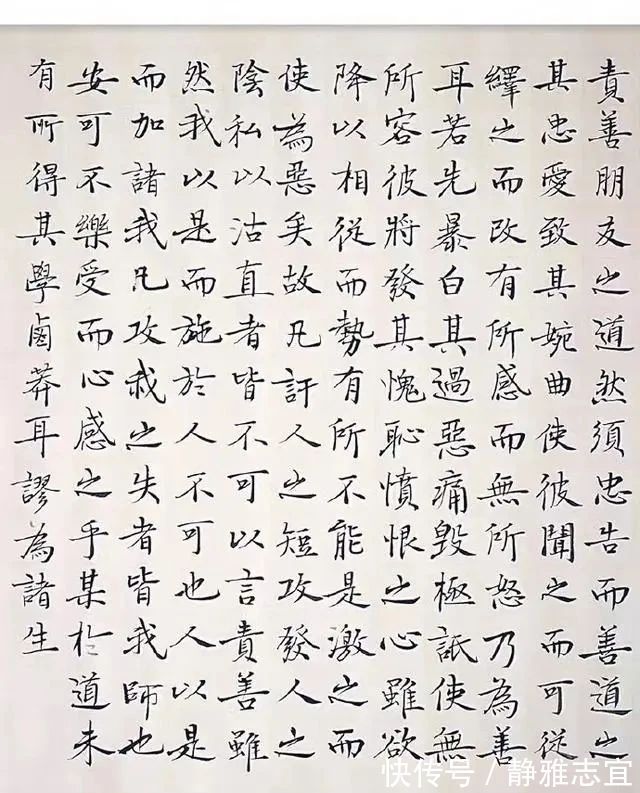 責善朋友之道然須忠告而善道之
其忠愛致其婉曲使彼聞之而可從
繹之而改有所感而無所怒乃為善
耳若先暴白其過惡痛毀極詆使無
所容彼將發其愧恥憤恨之心雖欲
降以相從而勢有所不能是激之而
使為惡矣故凡訐人之短攻發人之
陰私以沽直者皆不可以言責善雖
然我以是而施於人不可也人以是
而加諸我凡攻我之失者皆我師也
安可不樂受而心感之乎某於道未
有所得其學鹵莽耳謬為諸生
快传号/静雅志宜